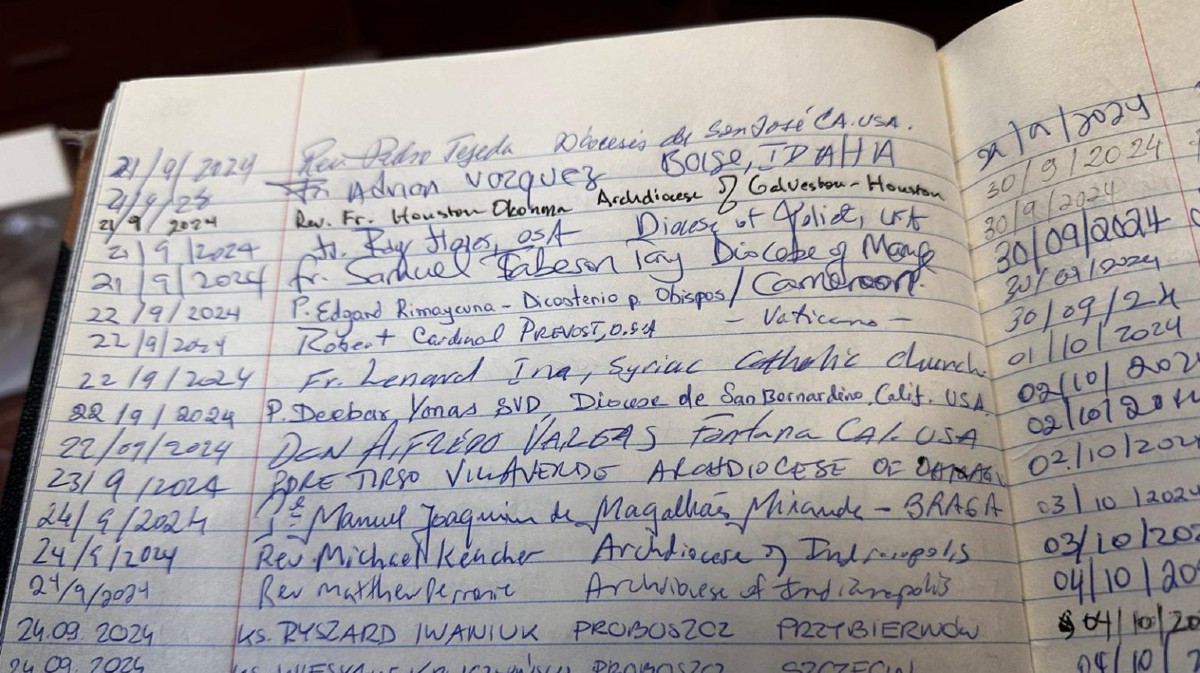 21/9/2024 Rev. Pedro Tejeda Diócesis de San José CA. USA.
21/9/23 Fr. Adrian Vazquez BOISE, IDAHA
21/9/2024 Rev. Fr. Houston Okonma Archdiocese of Galveston-Houston
21/9/2024 Fr. OSA Diocese of Joliet, USA
21/9/2024 fr. Samuel Diocese of
22/9/2024 P. Edgard Rimaycuna - Dicasterio p. Obispos / Cameroon.
22/9/2024 Robert Cardinal PREVOST, O.S.A - Vaticano -
22/9/2024 Fr. Lenard Ina, Syriac Catholic church
22/9/2024 P. Deebar Yonas SVD, Diocese de San Bernardino, Calif. USA
22/09/2024 DON ALFREDO VARGAS Fontana CAL. USA
23/9/2024 PDRE TIRSO VILLAVERDE ARCHDIOCESE OF
24/9/2024 Manuel Joaquim de Magalhães Miranda - BRAGA
24/9/2024 Rev. Michael Keucher Archdiocese of Indianapolis
24/9/2024 Rev Matthew Perronie Archdiocese of Indianapolis
24.09.2024 Ks. RYSZARD IWANIUK PROBOSZCZ PRZYBIERNÓW
24.09.2024 PROBOSZCZ SZCZECIN
/2024
30/9/2024
30/9/2024
30/09/2024
30/09/2024
30/09/24
01/10/2024
02/10/202
02/10/20
02/10/202
03/10/202
03/10/202
04/10/20
04/10/20
04/10/